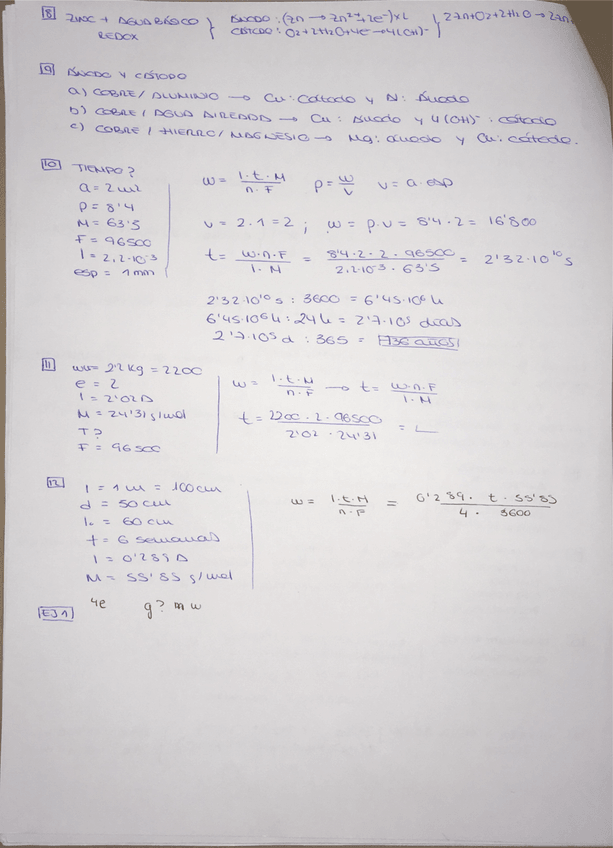 8 ZINC + AGUA BÁSICO } ÁNODO: (Zn → Zn²⁺ + 2e⁻) x2 } 2Zn + O2 + 2H2O → 2Zn
REDOX CÁTODO: O2 + 2H2O + 4e → 4(OH)⁻
9 ÁNODO Y CÁTODO
a) COBRE / ALUMINIO → Cu: Cátodo y Al: Ánodo
b) COBRE / AGUA AIREADA → Cu: Ánodo y 4(OH)⁻: cátodo
c) COBRE / HIERRO / MAGNESIO → Mg: ánodo y Cu: cátodo.
10 TIEMPO?
a = 2 m2
ρ = 8'4
M = 63'5
F = 96500
I = 2,2·10⁻³
esp = 1mm
w = I·t·M / n·F ρ = w/v v = a·esp
v = 2·1 = 2 ; w = ρ·v = 8'4·2 = 16'800
t = w·n·F / I·M = 8'4·2·2·96500 / 2,2·10⁻³·63'5 = 2'32·10¹⁰ s
2'32·10¹⁰ s : 3600 = 6'45·10⁶ h
6'45·10⁶ h : 24h = 2'7·10⁵ días
2'7·10⁵ d : 365 = 736 años
11 w = 2'2 Kg = 2200
e = 2
I = 2'02A
M = 24'31 g/mol
T?
F = 96500
w = I·t·M / n·F → t = w·n·F / I·M
t = 2200·2·96500 / 2'02·24'31 =
12 l = 1m = 100cm
d = 50cm
h = 60cm
t = 6 semanas
I = 0'289A
M = 55'85 g/mol
w = I·t·M / n·F = 0'289 · t · 55'85 / 4 · 3600
EJ 1 4e g? m w